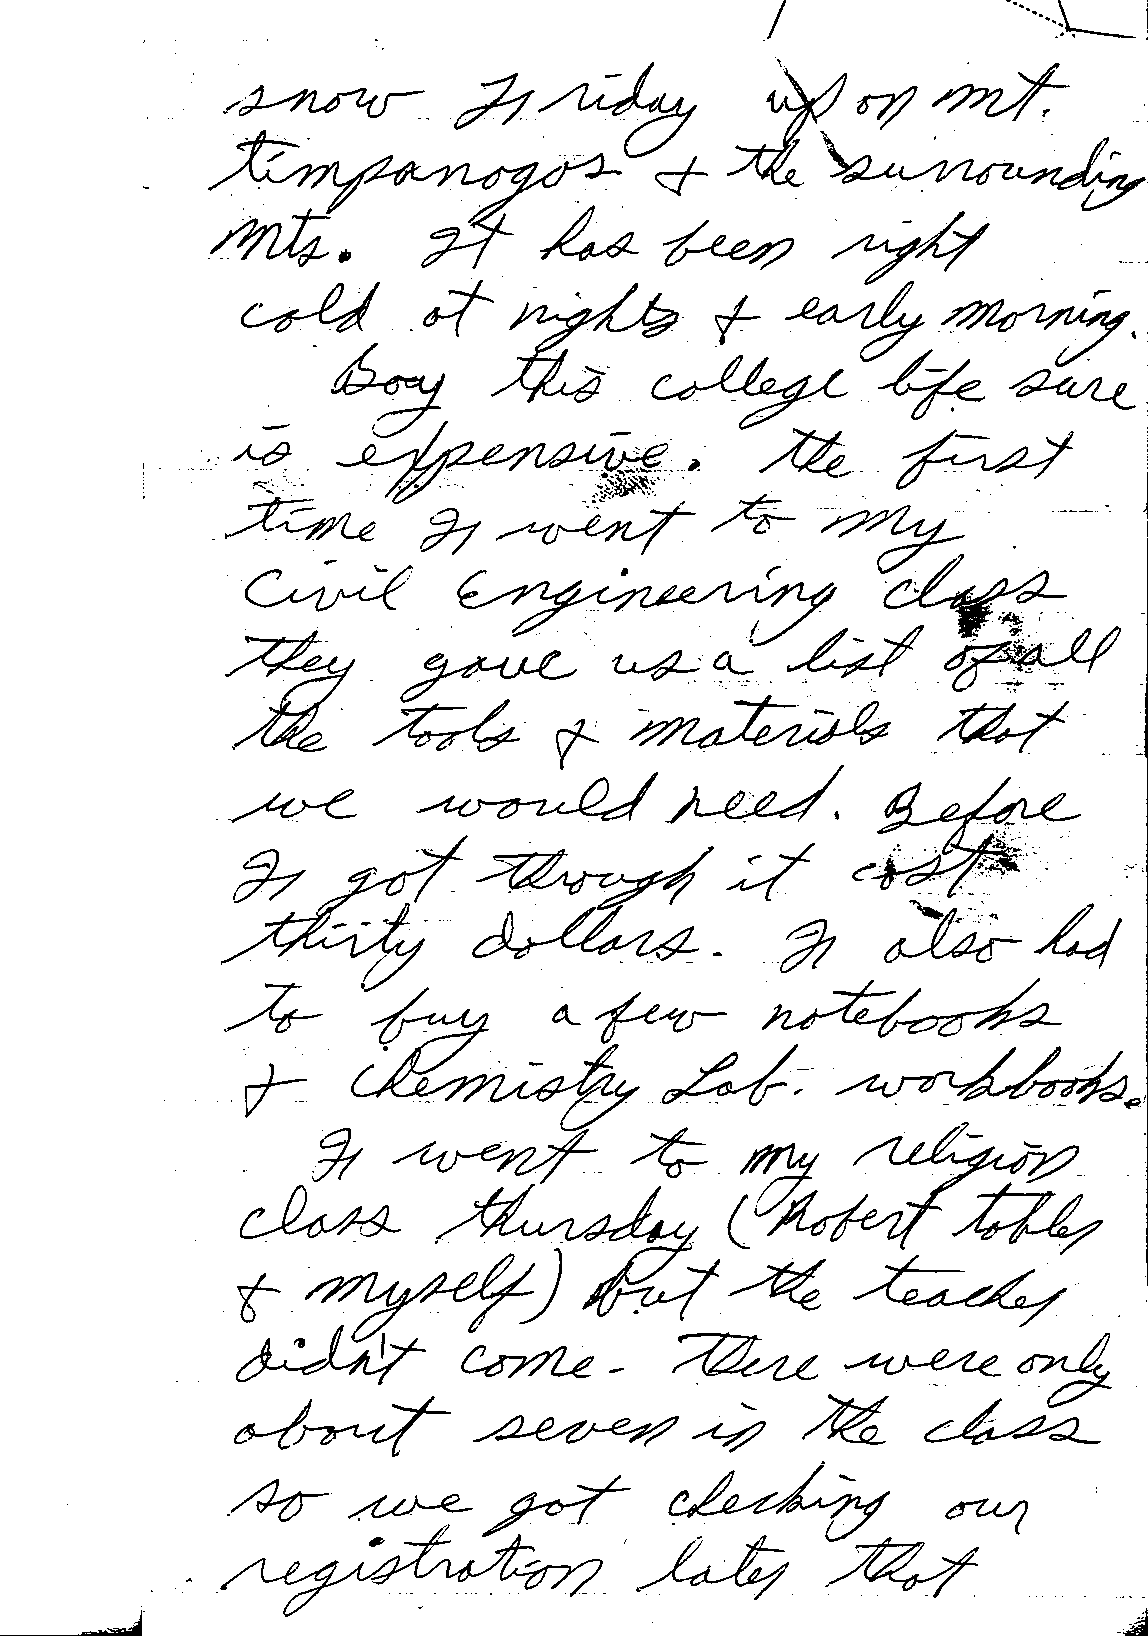 snow Friday up on Mt.
timpanogos & the surrounding
Mts. It has been right
cold at nights & early morning.
Boy this college life sure
is expensive. The first
time I went to my
Civil Engineering class
they gave us a list of all
the tools & materials that
we would need. Before
I got through it cost
thirty dollars. I also had
to buy a few notebooks
& Chemistry Lab. workbooks.
I went to my religion
class thursday (Robert
& myself) but the teacher
didn't come. There were only
about seven in the class
so we got checking our
registration later that